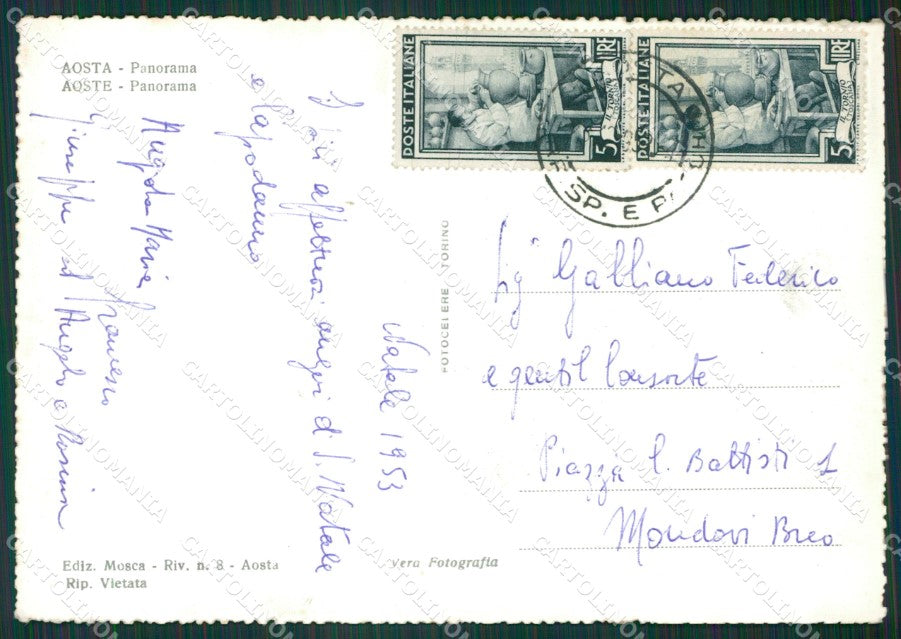 AOSTA - Panorama
AOSTE - Panorama
Natale 1953
I più affettuosi auguri di S. Natale
e Capodanno
Angela Maria Francesco
Giuseppe ed Angelo e
Ediz. Mosca - Riv. n. 8 - Aosta
Rip. Vietata
FOTOCELERE TORINO
Vera Fotografia
POSTE ITALIANE
5 LIRE
POSTE ITALIANE
5 LIRE
SP. E P
Sig Galliano Federico
e gentil Consorte
Piazza C. Battisti 1
Mondovì Breo
CARTOLINOMANIA